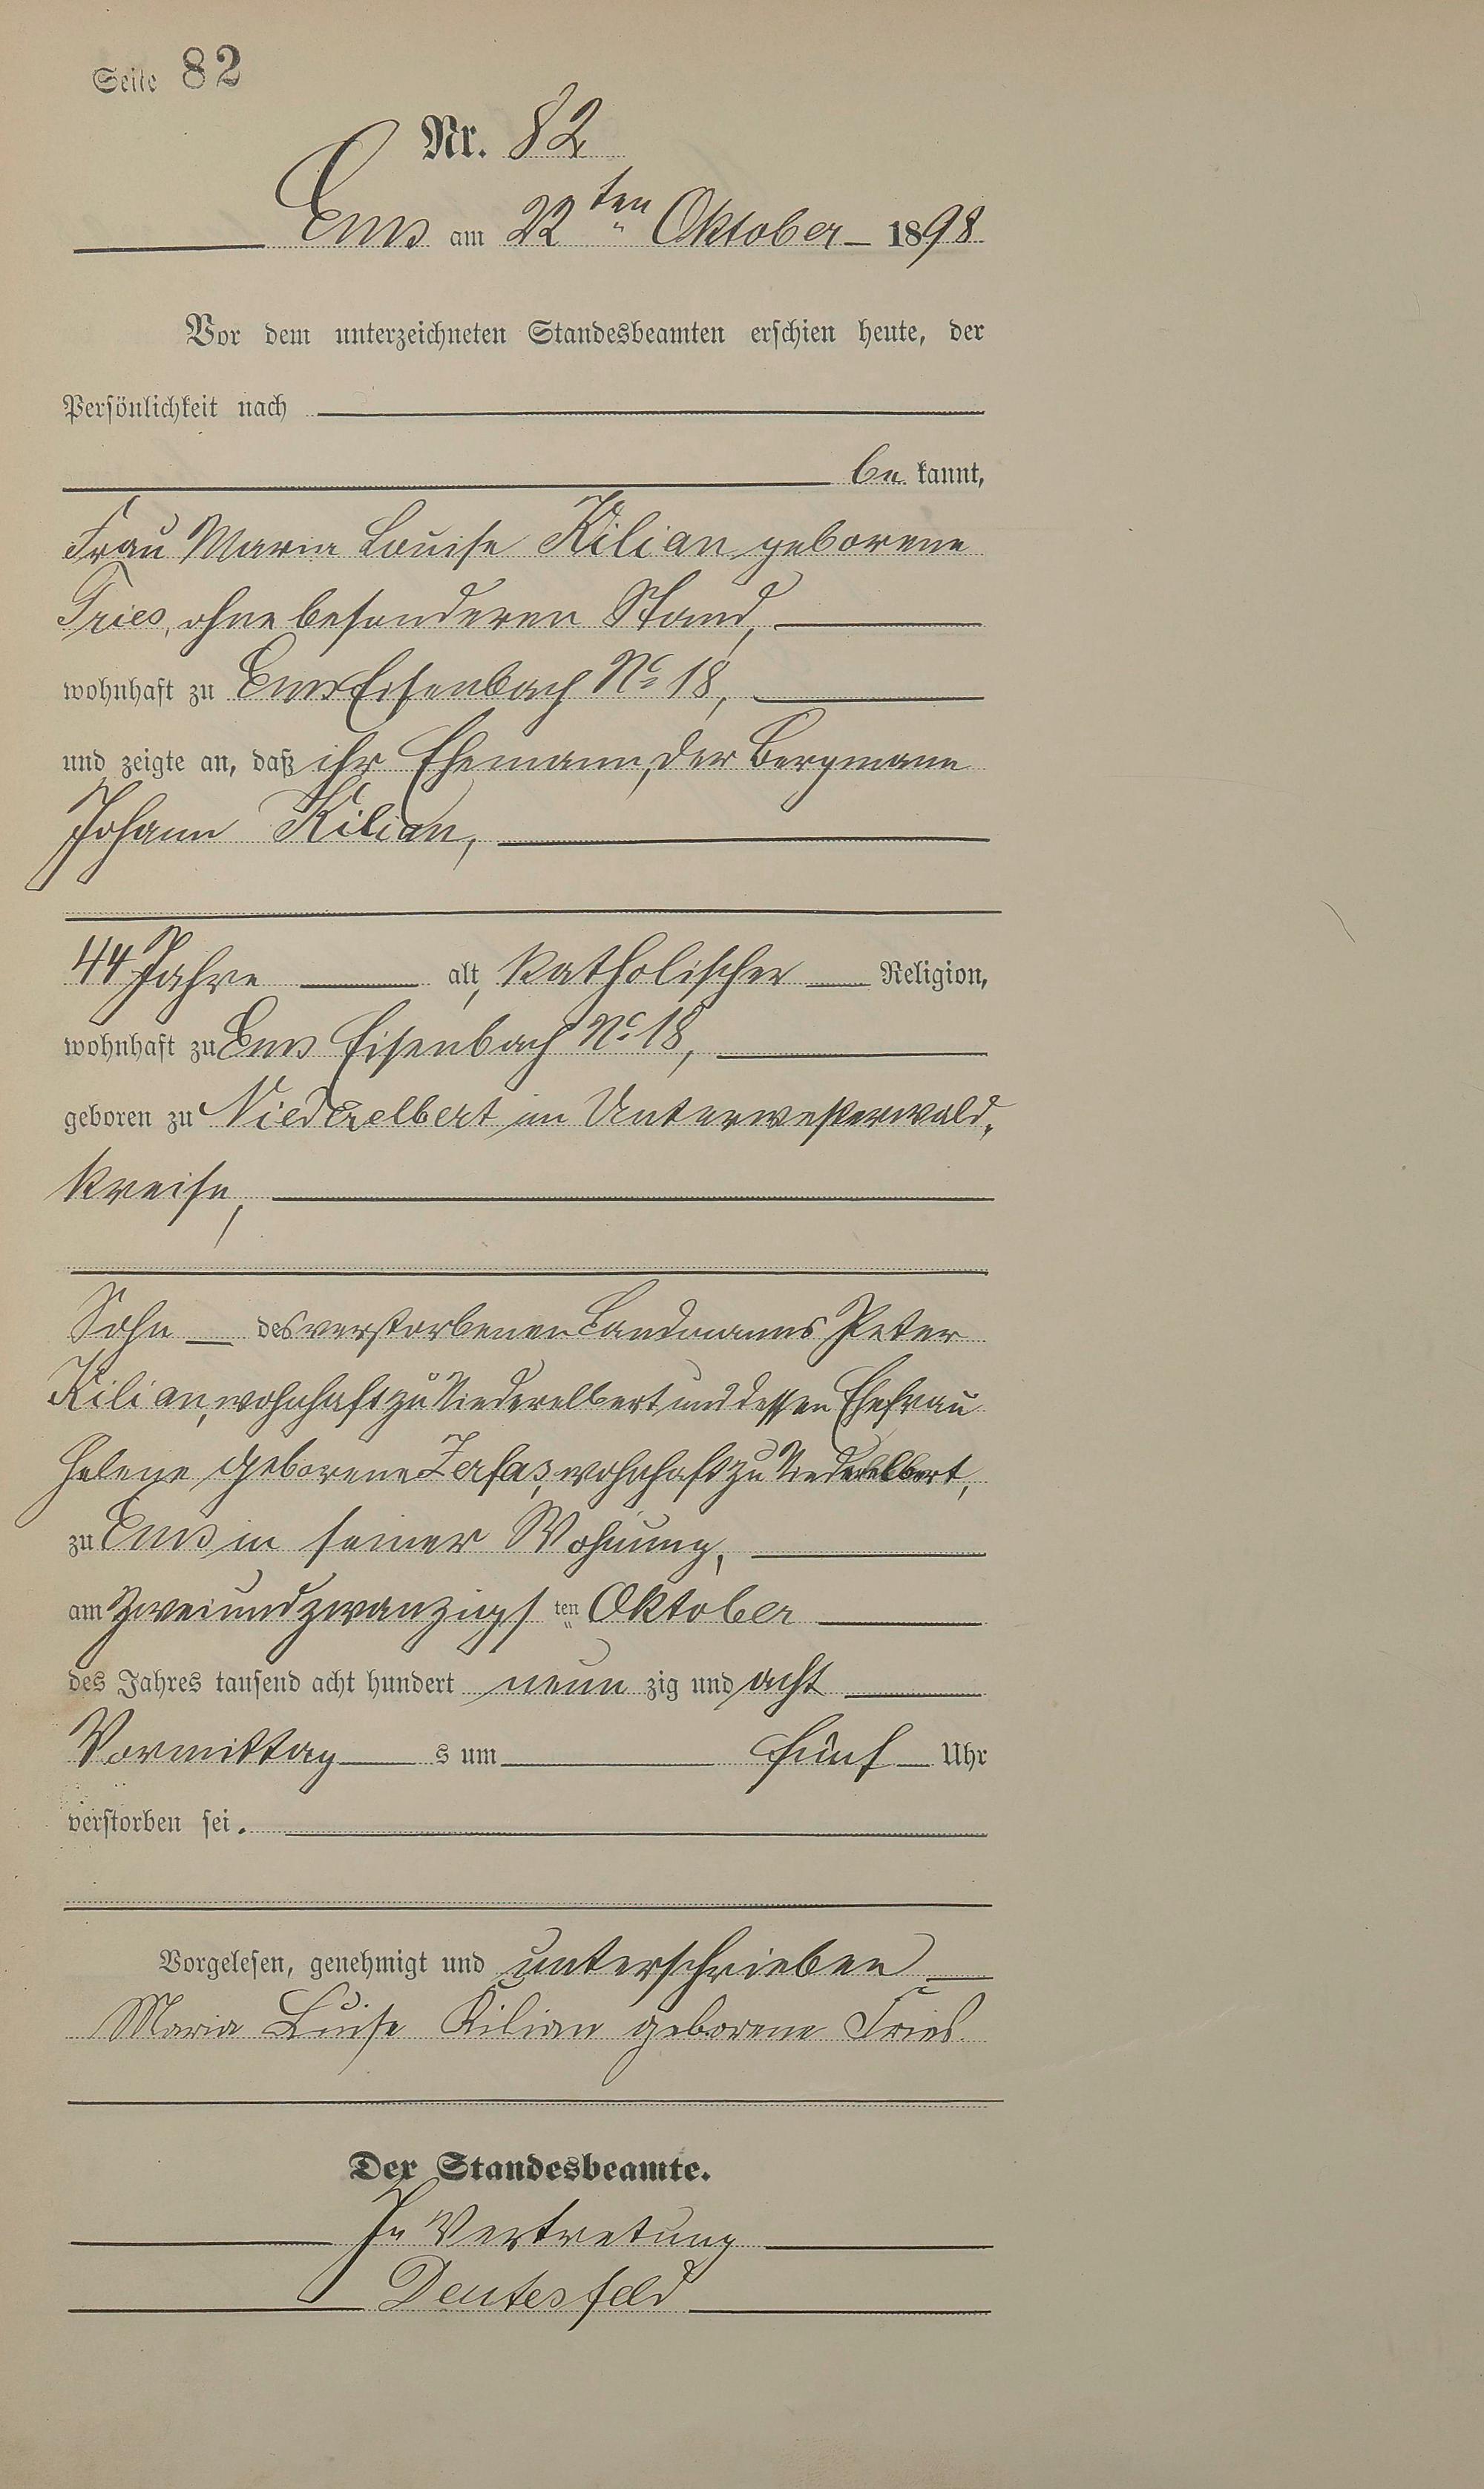 Seite 82
Nr. 82
Ems am 22ten Oktober 1898
Vor dem unterzeichneten Standesbeamten erschien heute, der
Persönlichkeit nach
be kannt,
Frau Maria Louise Kilian geborene
Fries, ohne besonderen Stand,
wohnhaft zu Ems Eisenbach No 18,
und zeigte an, daß ihr Ehemann, der Bergmann
Johann Kilian,
44 Jahre alt, katholischer Religion,
wohnhaft zu Ems Eisenbach No 18,
geboren zu Niederelbert im Unterwesterwald-
kreise,
Sohn des verstorbenen Landmanns Peter
Kilian, wohnhaft zu Niederelbert und dessen Ehefrau
Helene geborene Zerfas, wohnhaft zu Niederelbert,
zu Ems in seiner Wohnung,
am zweiundzwanzigsten Oktober
des Jahres tausend acht hundert neun zig und acht
Vormittag s um fünf Uhr
verstorben sei.
Vorgelesen, genehmigt und unterschrieben
Maria Luise Kilian geborene Fries.
Der Standesbeamte.
In Vertretung
Deutesfeld